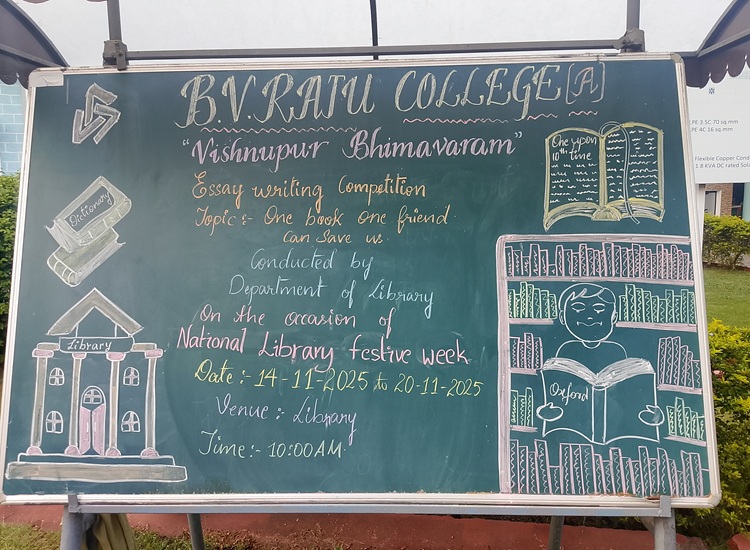 B.V.RAJU COLLEGE [A]
"Vishnupur Bhimavaram"
Essay writing Competition
Topic :- One book one friend
Can Save us
Conducted by
Department of Library
On the occasion of
National Library festive week
Date :- 14-11-2025 to 20-11-2025
Venue :- Library
Time :- 10:00AM
Dictionary
Library
One upon
10th time
Oxford
PE 3.5C 70 sq.mm
PE 4C 16 sq.mm
Flexible Copper Cond
1.8 KVA DC rated Sola